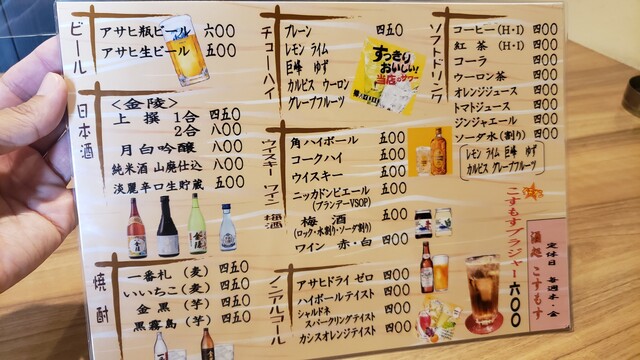 ビール
アサヒ瓶ビール 六〇〇
アサヒ生ビール 五〇〇
日本酒
＜金陵＞
上撰 1合 四五〇
2合 八〇〇
月白吟醸 八〇〇
純米酒 山廃仕込 八〇〇
淡麗辛口生貯蔵 八〇〇
焼酎
一番札（麦） 四五〇
いいちこ（麦） 四五〇
金黒（芋） 四五〇
黒霧島（芋） 四五〇
チューハイ
プレーン 四五〇
レモン ライム
巨峰 ゆず
カルピス ウーロン
グレープフルーツ
すっきり
おいしい！
当店のサワー
ウイスキー ワイン 梅酒
角ハイボール 五〇〇
コークハイ 五〇〇
ウイスキー 五〇〇
ニッカドンピエール 五〇〇
（ブランデーVSOP）
梅酒 五〇〇
（ロック・水割り・ソーダ割り）
ワイン 赤・白 四〇〇
ノンアルコール
アサヒドライ ゼロ 四〇〇
ハイボールテイスト 四〇〇
シャルドネ
スパークリングテイスト 四〇〇
カシスオレンジテイスト 四〇〇
ソフトドリンク
コーヒー（H・I） 四〇〇
紅茶（H・I） 四〇〇
コーラ 四〇〇
ウーロン茶 四〇〇
オレンジジュース 四〇〇
トマトジュース 四〇〇
ジンジャエール 四〇〇
ソーダ水（割り） 四〇〇
レモン ライム 巨峰 ゆず
カルピス グレープフルーツ
こすもすブラジャー 六〇〇
酒処 こすもす
定休日 毎週木・金